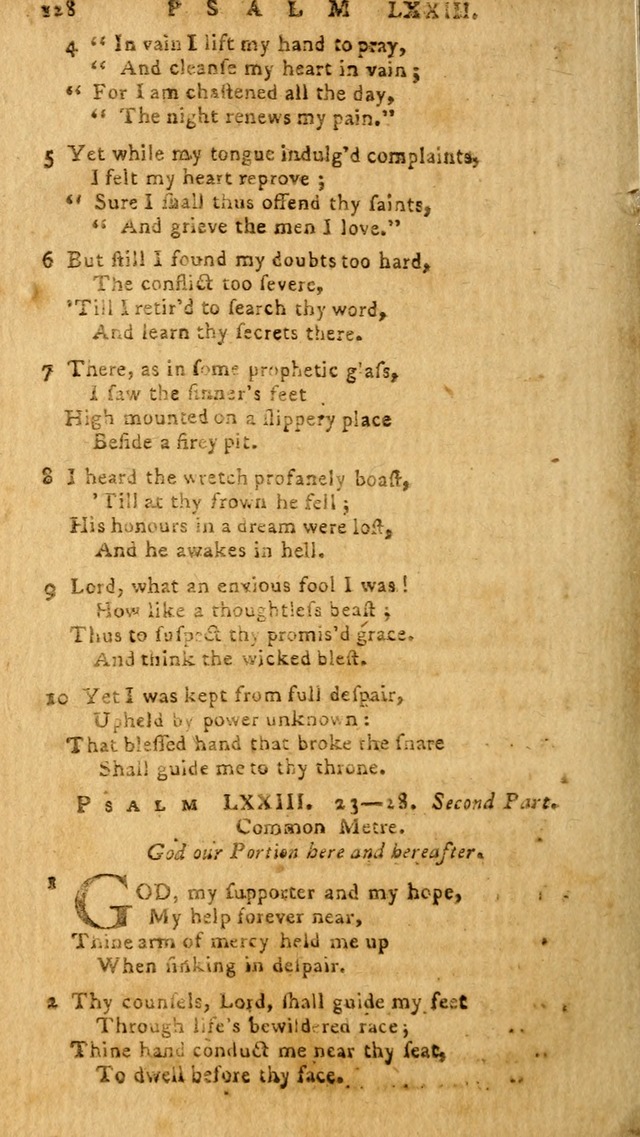 128 PSALM LXXIII.
4 “ In vain I lift my hand to pray,
“ And cleanſe my heart in vain ;
“ For I am chaſtened all the day,
“ The night renews my pain.”
5 Yet while my tongue indulg’d complaints,
I felt my heart reprove ;
“ Sure I ſhall thus offend thy ſaints,
“ And grieve the men I love.”
6 But ſtill I found my doubts too hard,
The conflict too ſevere,
’Till I retir’d to ſearch thy word,
And learn thy ſecrets there.
7 There, as in ſome prophetic glaſs,
I ſaw the ſinner’s feet
High mounted on a ſlippery place
Beſide a firey pit.
8 I heard the wretch profanely boaſt,
’Till at thy frown he fell ;
His honours in a dream were loſt,
And he awakes in hell.
9 Lord, what an envious fool I was !
How like a thoughtleſs beaſt ;
Thus to ſuſpect thy promis’d grace.
And think the wicked bleſt.
10 Yet I was kept from full deſpair,
Upheld by power unknown :
That bleſſed hand that broke the ſnare
Shall guide me to thy throne.
PSALM LXXIII. 23—28. Second Part.
Common Metre.
God our Portion here and hereafter.
1 GOD, my ſupporter and my hope,
My help forever near,
Thine arm of mercy held me up
When ſinking in deſpair.
2 Thy counſels, Lord, ſhall guide my feet
Through life’s bewildered race ;
Thine hand conduct me near thy ſeat,
To dwell before thy face.